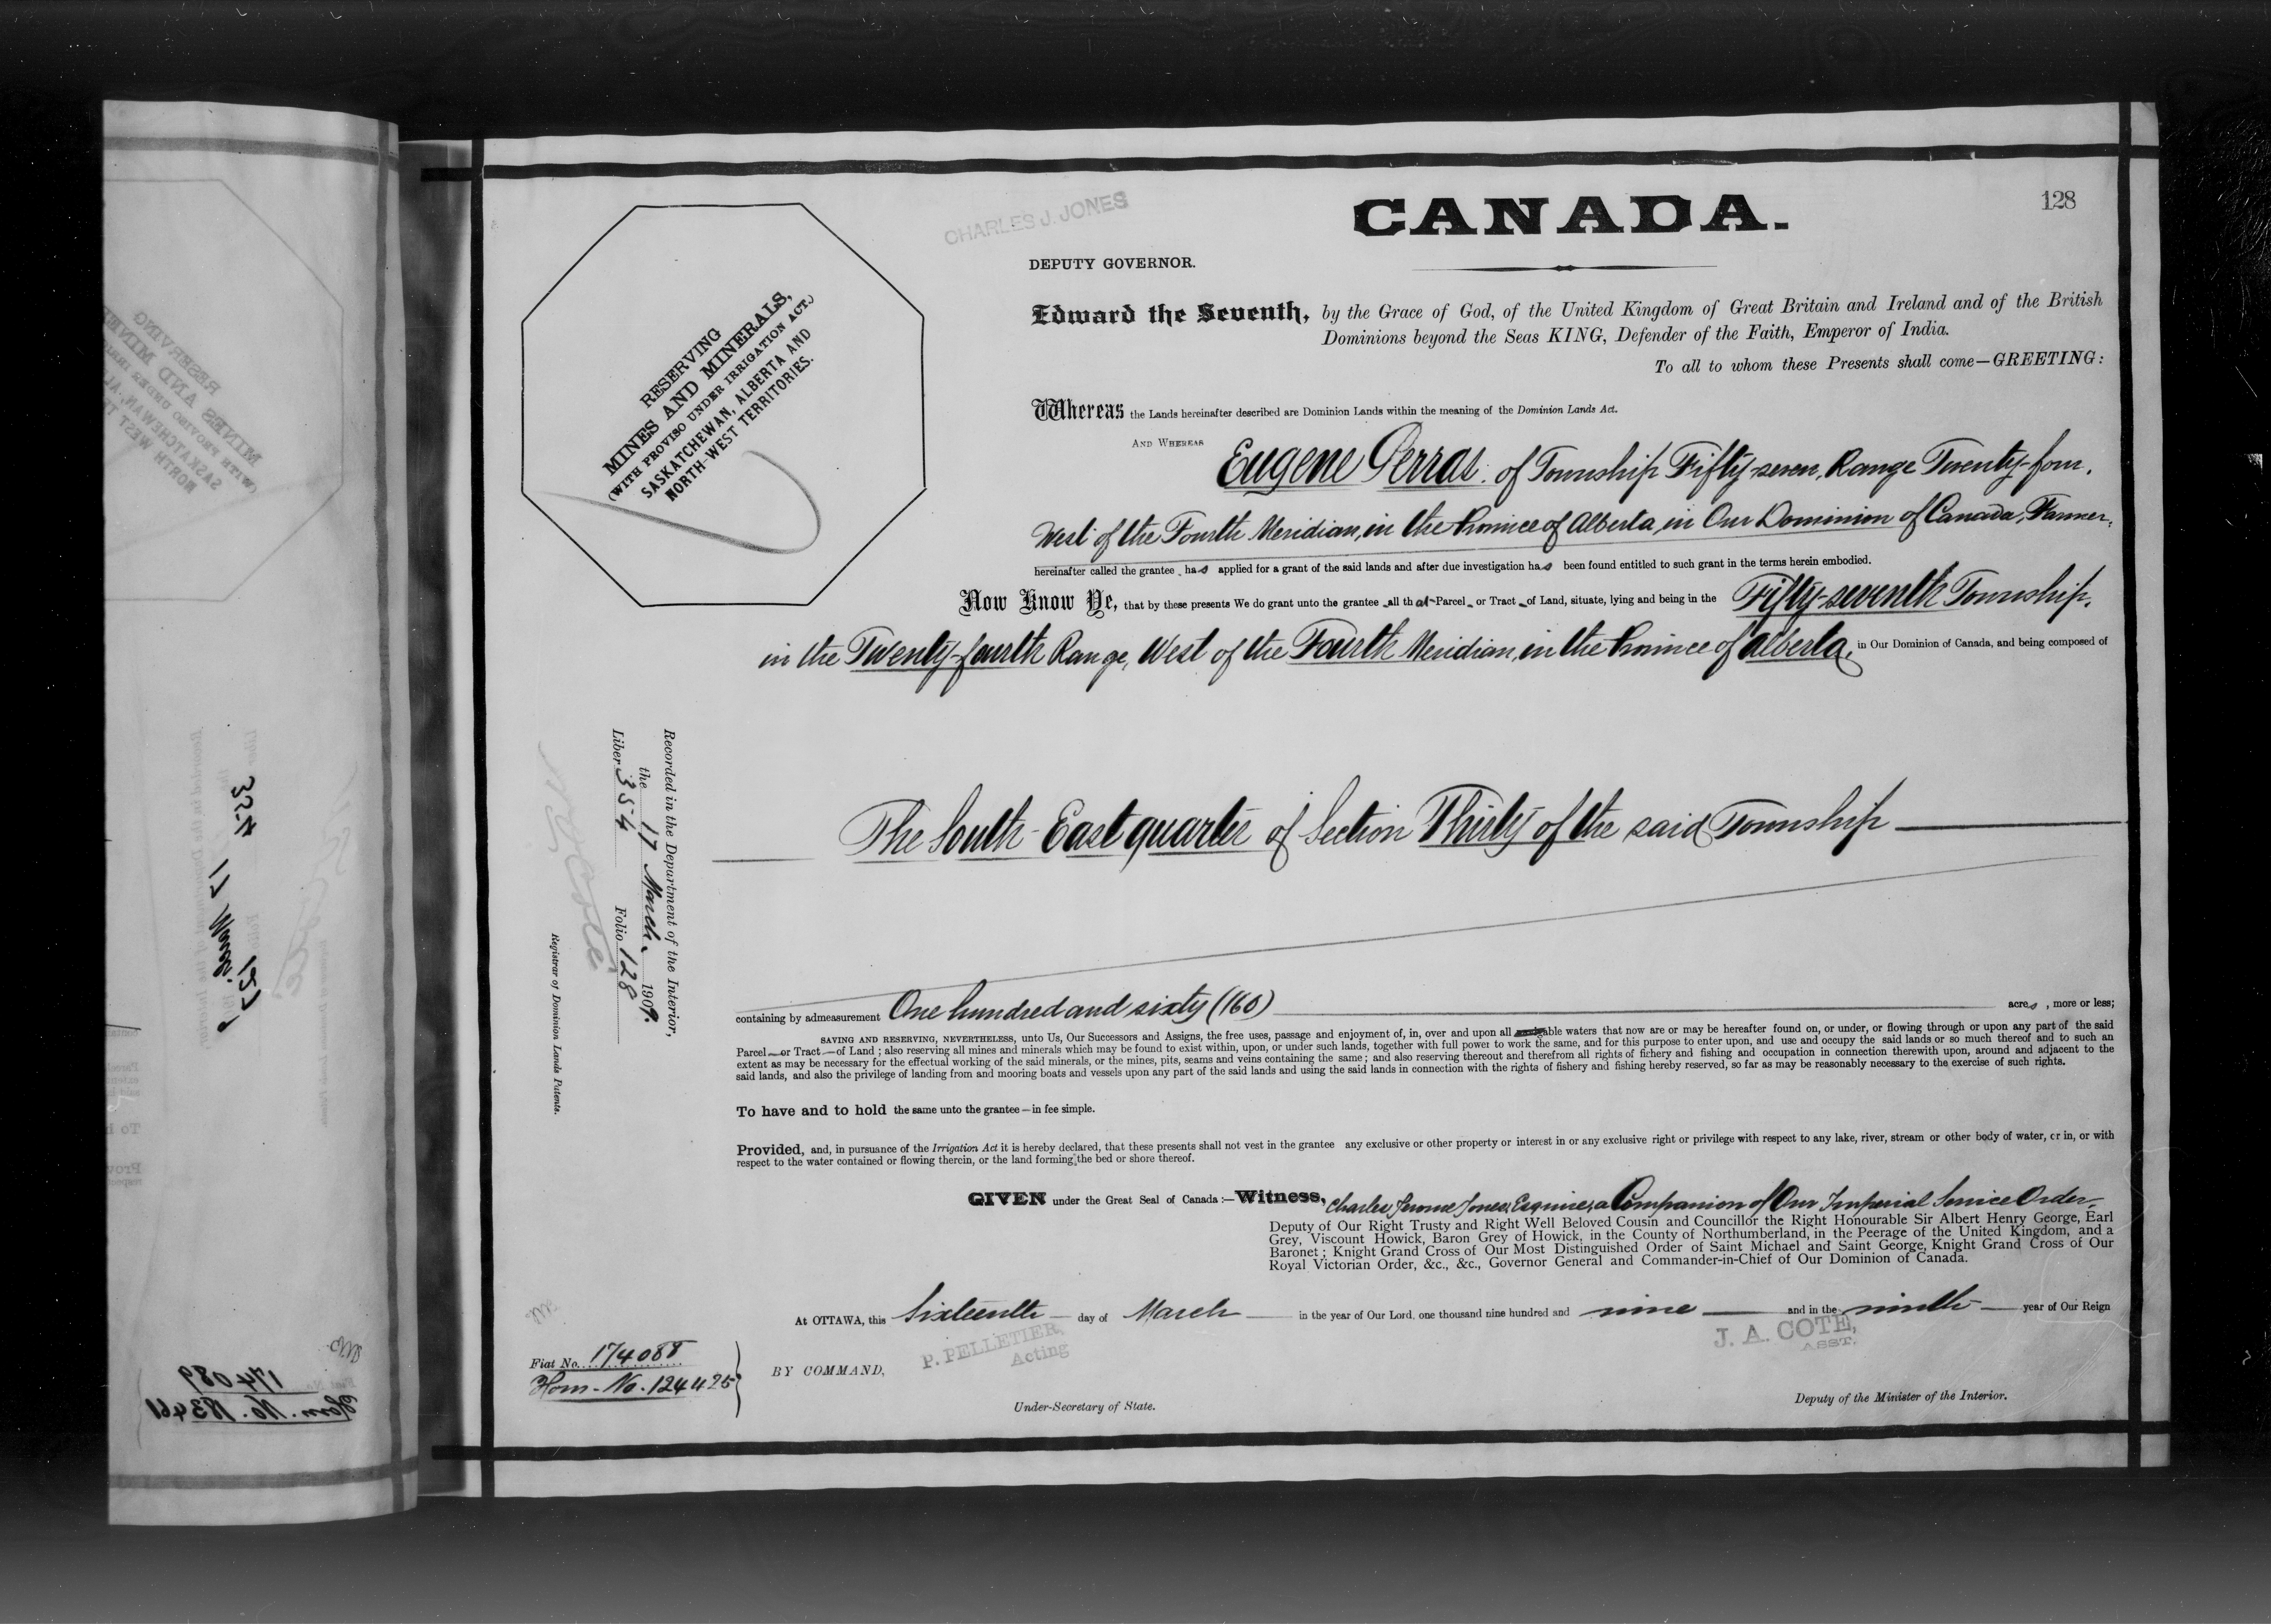 128
CHARLES J. JONES
CANADA.
DEPUTY GOVERNOR.
RESERVING
MINES AND MINERALS,
(WITH PROVISO UNDER IRRIGATION ACT.)
SASKATCHEWAN, ALBERTA AND
NORTH-WEST TERRITORIES.
Edward the Seventh, by the Grace of God, of the United Kingdom of Great Britain and Ireland and of the British
Dominions beyond the Seas KING, Defender of the Faith, Emperor of India.
To all to whom these Presents shall come—GREETING:
Whereas the Lands hereinafter described are Dominion Lands within the meaning of the Dominion Lands Act.
AND WHEREAS Eugene Perras of Township Fifty-seven, Range Twenty-four,
West of the Fourth Meridian, in the Province of Alberta, in Our Dominion of Canada, Farmer,
hereinafter called the grantee, has applied for a grant of the said lands and after due investigation has been found entitled to such grant in the terms herein embodied.
Now Know Ye, that by these presents We do grant unto the grantee all that Parcel or Tract of Land, situate, lying and being in the Fifty-seventh Township,
in the Twenty-fourth Range, West of the Fourth Meridian, in the Province of Alberta, in Our Dominion of Canada, and being composed of
The South-East quarter of Section Thirty of the said Township
Recorded in the Department of the Interior,
the 17 March 1909.
Liber 354 Folio 128
Registrar of Dominion Lands Patents.
containing by admeasurement One hundred and sixty (160) acres, more or less;
SAVING AND RESERVING, NEVERTHELESS, unto Us, Our Successors and Assigns, the free uses, passage and enjoyment of, in, over and upon all navigable waters that now are or may be hereafter found on, or under, or flowing through or upon any part of the said
Parcel or Tract of Land; also reserving all mines and minerals which may be found to exist within, upon, or under such lands, together with full power to work the same, and for this purpose to enter upon, and use and occupy the said lands or so much thereof and to such an
extent as may be necessary for the effectual working of the said minerals, or the mines, pits, seams and veins containing the same; and also reserving thereout and therefrom all rights of fichery and fishing and occupation in connection therewith upon, around and adjacent to the
said lands, and also the privilege of landing from and mooring boats and vessels upon any part of the said lands and using the said lands in connection with the rights of fishery and fishing hereby reserved, so far as may be reasonably necessary to the exercise of such rights.
To have and to hold the same unto the grantee—in fee simple.
Provided, and, in pursuance of the Irrigation Act it is hereby declared, that these presents shall not vest in the grantee any exclusive or other property or interest in or any exclusive right or privilege with respect to any lake, river, stream or other body of water, or in, or with
respect to the water contained or flowing therein, or the land forming the bed or shore thereof.
GIVEN under the Great Seal of Canada:—Witness, Charles Jerome Jones, Esquire, a Companion of Our Imperial Service Order,
Deputy of Our Right Trusty and Right Well Beloved Cousin and Councillor the Right Honourable Sir Albert Henry George, Earl
Grey, Viscount Howick, Baron Grey of Howick, in the County of Northumberland, in the Peerage of the United Kingdom, and a
Baronet; Knight Grand Cross of Our Most Distinguished Order of Saint Michael and Saint George, Knight Grand Cross of Our
Royal Victorian Order, &c., &c., Governor General and Commander-in-Chief of Our Dominion of Canada.
At OTTAWA, this Sixteenth day of March in the year of Our Lord, one thousand nine hundred and nine and in the ninth year of Our Reign
P. PELLETIER,
Acting
J. A. COTE,
ASST.
Fiat No. 174088
Hom. No. 124425
BY COMMAND,
Under-Secretary of State.
Deputy of the Minister of the Interior.
174089
Hom. No. 183461